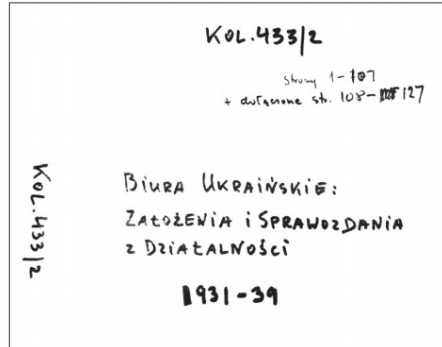 KOL.433/2
strony 1-107
+ dołączone str. 108-127
KOL.433/2
BIURA UKRAIŃSKIE:
ZAŁOŻENIA i SPRAWOZDANIA
z DZIAŁALNOŚCI
1931-39